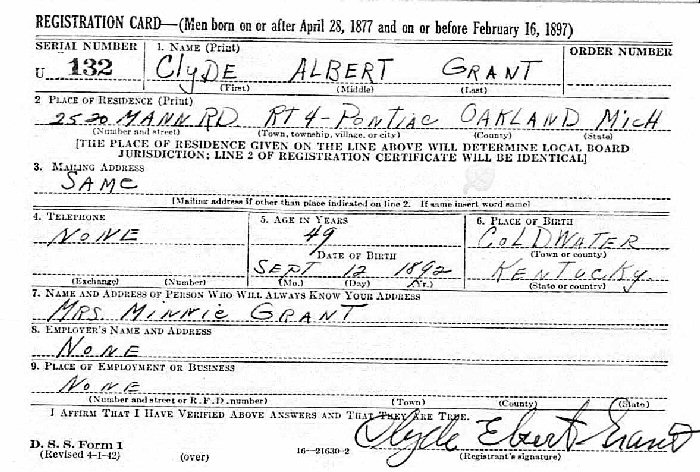 REGISTRATION CARD—(Men born on or after April 28, 1877 and on or before February 16, 1897)
SERIAL NUMBER 1. NAME (Print) ORDER NUMBER
U 132 CLYDE ALBERT GRANT
(First) (Middle) (Last)
2 PLACE OF RESIDENCE (Print)
2520 MANN RD RT 4 - PONTIAC OAKLAND MICH
(Number and street) (Town, township, village, or city) (County) (State)
[THE PLACE OF RESIDENCE GIVEN ON THE LINE ABOVE WILL DETERMINE LOCAL BOARD
JURISDICTION; LINE 2 OF REGISTRATION CERTIFICATE WILL BE IDENTICAL]
3. MAILING ADDRESS
SAME
[Mailing address if other than place indicated on line 2. If same insert word same]
4. TELEPHONE 5. AGE IN YEARS 6. PLACE OF BIRTH
NONE 49 COLDWATER
DATE OF BIRTH (Town or county)
SEPT 12 1892 KENTUCKY
(Exchange) (Number) (Mo.) (Day) (Yr.) (State or country)
7. NAME AND ADDRESS OF PERSON WHO WILL ALWAYS KNOW YOUR ADDRESS
MRS. MINNIE GRANT
8. EMPLOYER'S NAME AND ADDRESS
NONE
9. PLACE OF EMPLOYMENT OR BUSINESS
NONE
(Number and street or R. F. D. number) (Town) (County) (State)
I AFFIRM THAT I HAVE VERIFIED ABOVE ANSWERS AND THAT THEY ARE TRUE.
Clyde Elbert Grant
D. S. S. Form 1
(Revised 4-1-42) (over) 16—21630-2 (Registrant's signature)